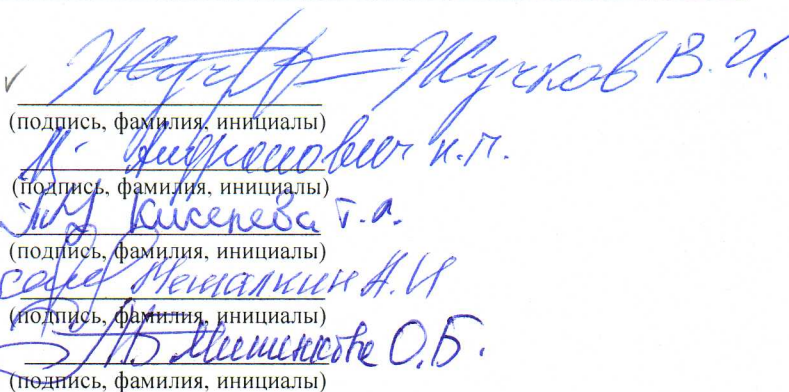 Жучков В.И.
(подпись, фамилия, инициалы)
Андронович К.П.
(подпись, фамилия, инициалы)
Киселева Т.А.
(подпись, фамилия, инициалы)
Металкин А.И
(подпись, фамилия, инициалы)
О.Б.
(подпись, фамилия, инициалы)